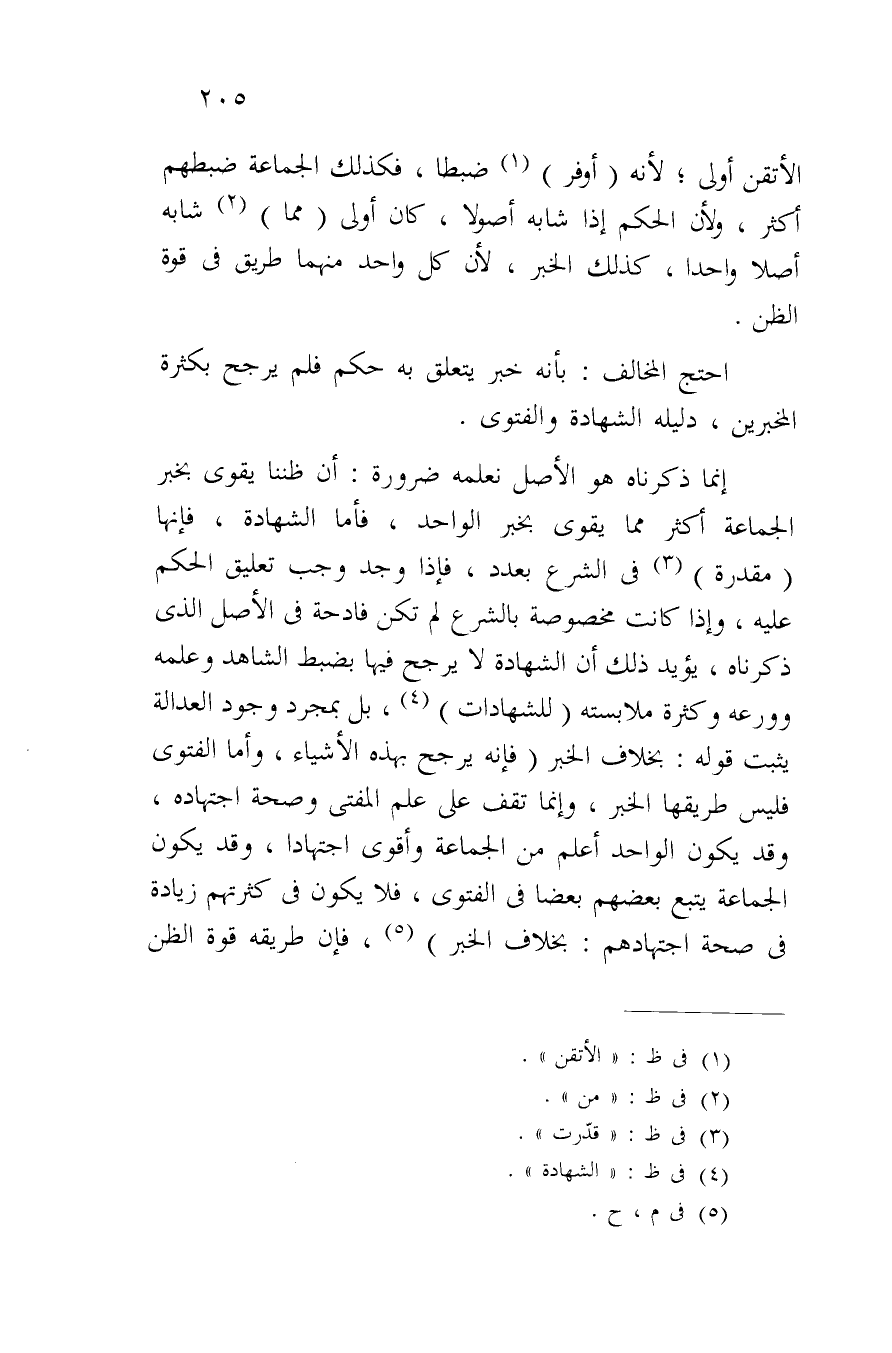 ٢٠٥
الأتقن أولى ؛ لأنه ( أوفر ) (١) ضبطا ، فكذلك الجماعة ضبطهم
أكثر ، ولأن الحكم إذا شابه أصولا ، كان أولى ( مما ) (٢) شابه
أصلا واحدا ، كذلك الخبر ، لأن كل واحد منهما طريق فى قوة
الظن .
احتج المخالف : بأنه خبر يتعلق به حكم فلم يرجح بكثرة
المخبرين ، دليله الشهادة والفتوى .
إنما ذكرناه هو الأصل نعلمه ضرورة : أن ظننا يقوى بخبر
الجماعة أكثر مما يقوى بخبر الواحد ، فأما الشهادة ، فإنها
( مقدرة ) (٣) فى الشرع بعدد ، فإذا وجد وجب تعليق الحكم
عليه ، وإذا كانت مخصوصة بالشرع لم تكن فادحة فى الأصل الذى
ذكرناه ، يؤيد ذلك أن الشهادة لا يرجح فيها بضبط الشاهد وعلمه
وورعه وكثرة ملابسته ( للشهادات ) (٤) ، بل بمجرد وجود العدالة
يثبت قوله : بخلاف الخبر ( فإنه يرجح بهذه الأشياء ، وأما الفتوى
فليس طريقها الخبر ، وإنما تقف على علم المفتى وصحة اجتهاده ،
وقد يكون الواحد أعلم من الجماعة وأقوى اجتهادا ، وقد يكون
الجماعة يتبع بعضهم بعضا فى الفتوى ، فلا يكون فى كثرتهم زيادة
فى صحة اجتهادهم : بخلاف الخبر ) (٥) ، فإن طريقه قوة الظن
(١) فى ظ : « الأتقن » .
(٢) فى ظ : « من » .
(٣) فى ظ : « قدّرت » .
(٤) فى ظ : « الشهادة » .
(٥) فى م ، ح .